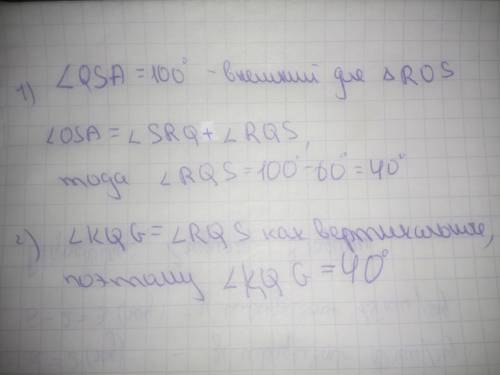 1) ∠QSA = 100° - внешний для △RQS
∠QSA = ∠SRQ + ∠RQS,
тода ∠RQS = 100° - 60° = 40°
2) ∠KQG = ∠RQS как вертикальные,
поэтому ∠KQG = 40°